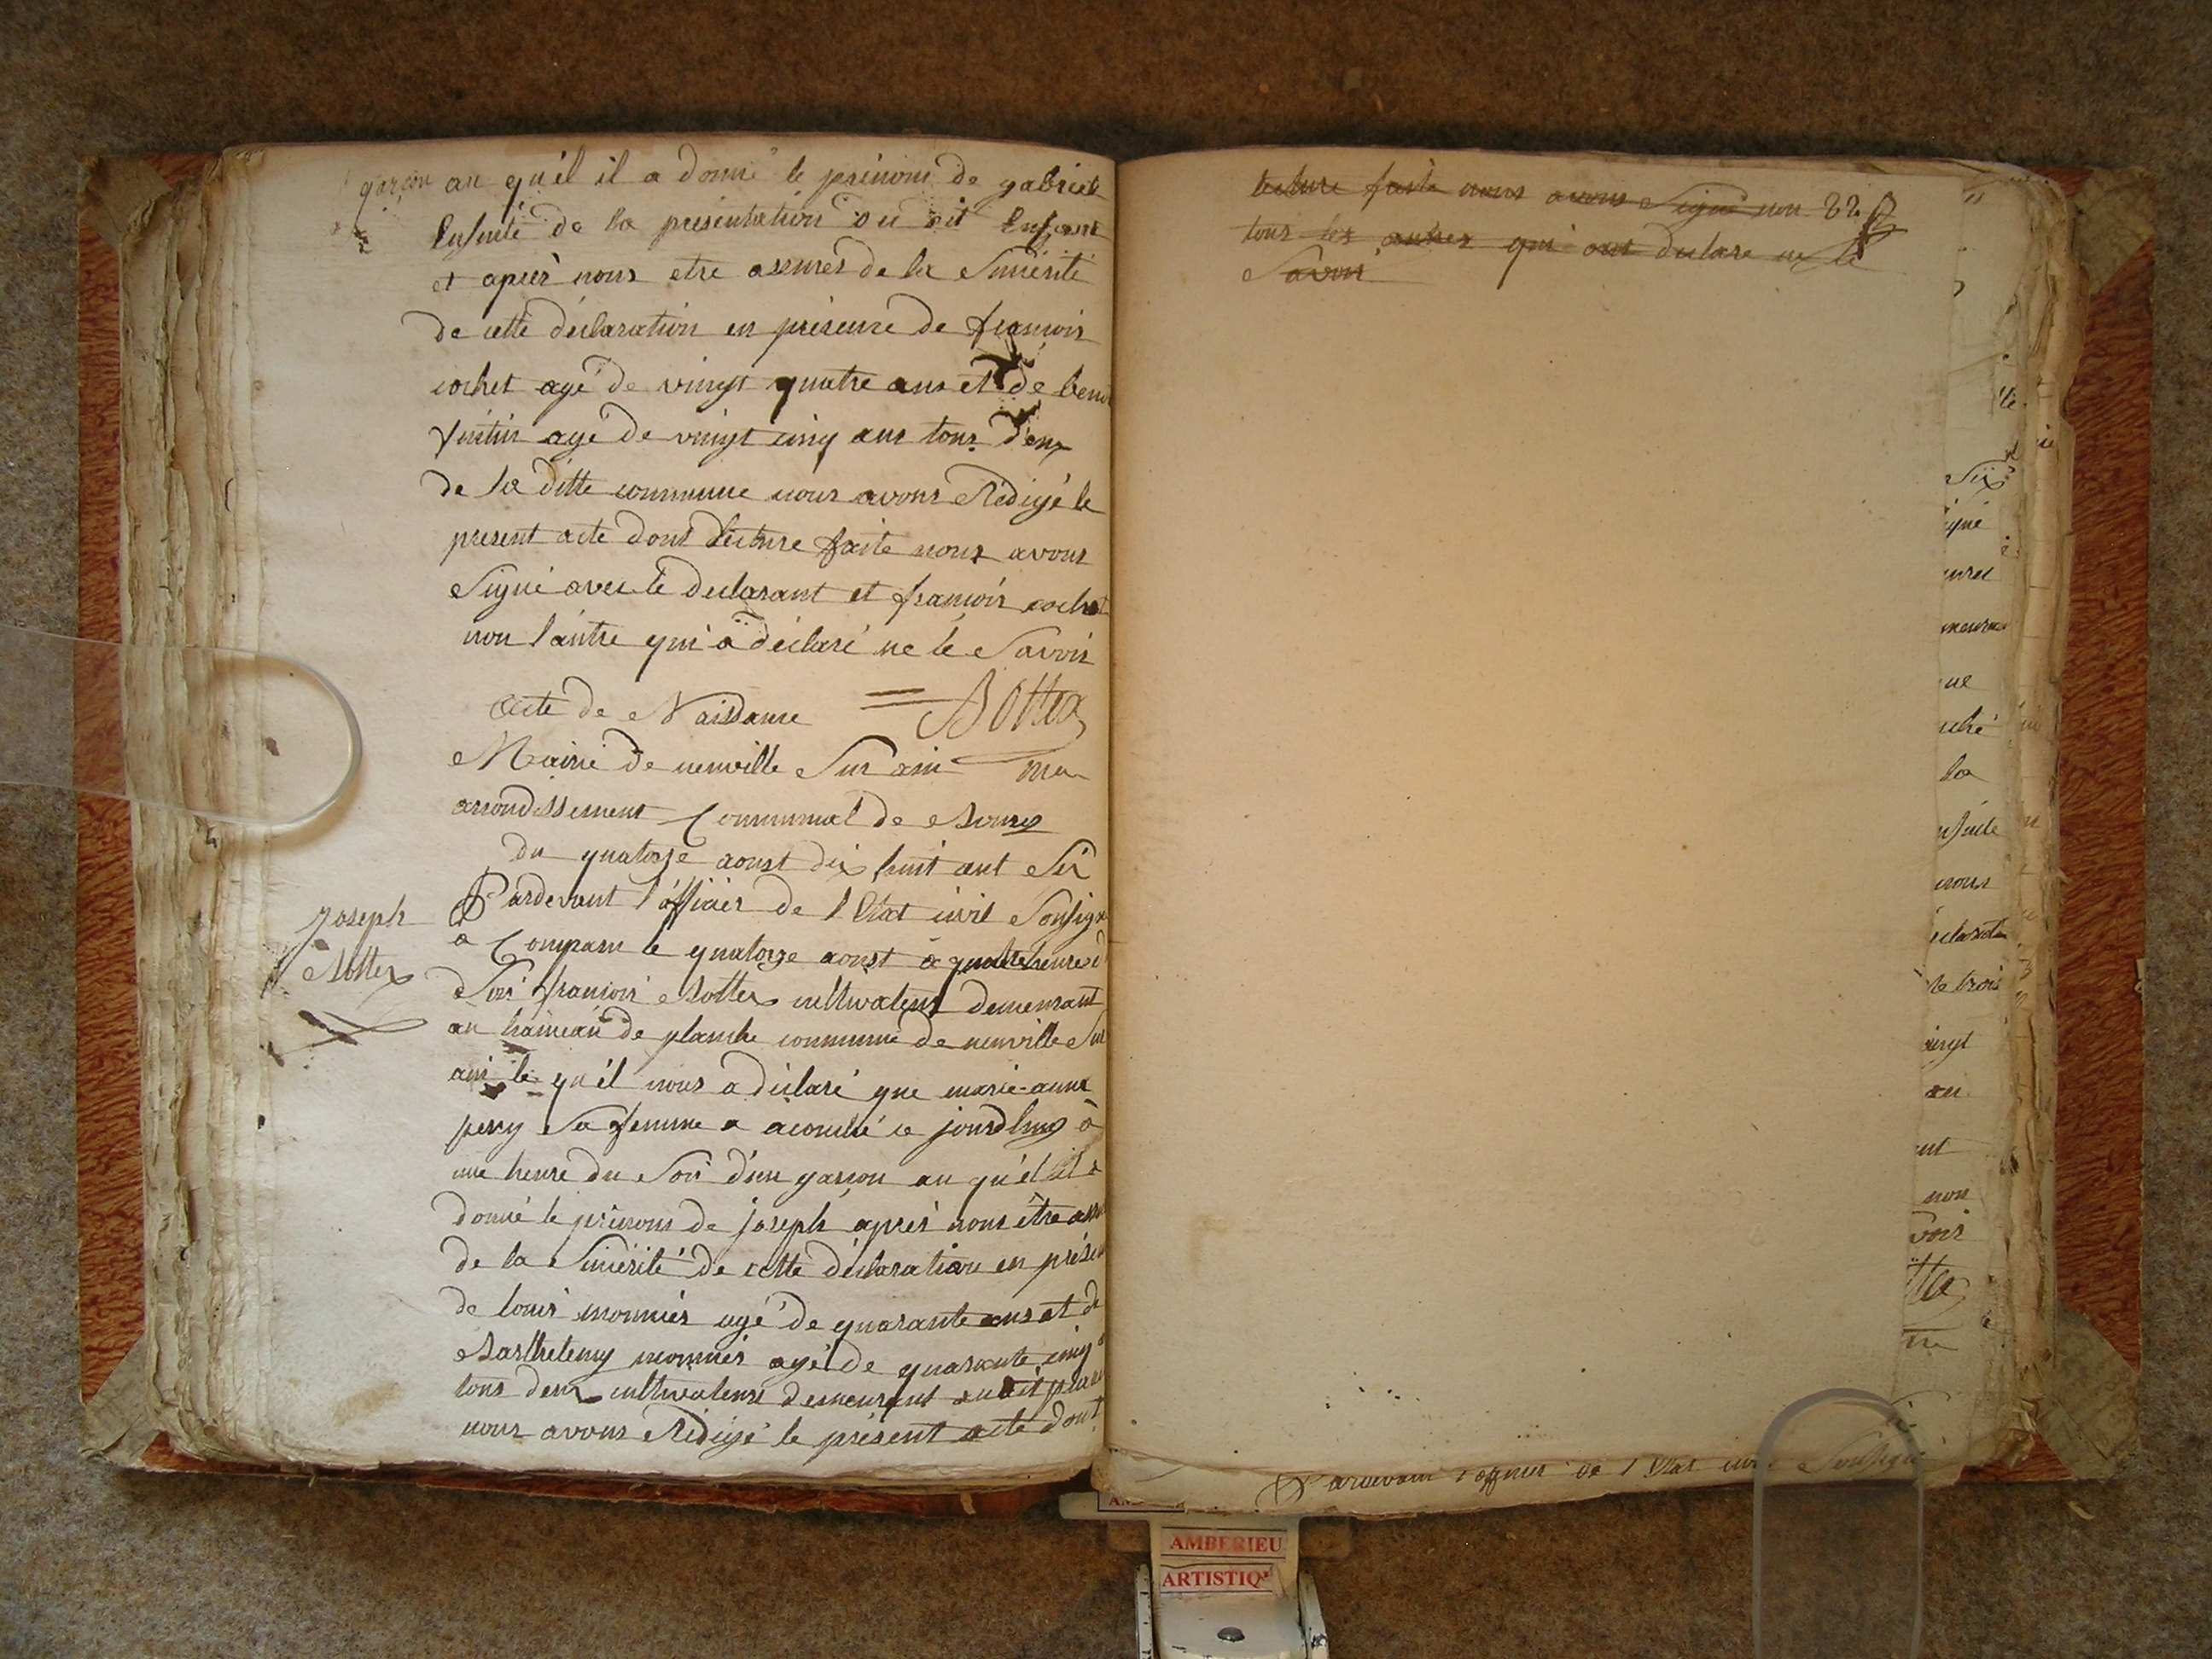 garçon au qu'él il a donné le prénom de gabriel
Ensuite de la presentation du dit Enfant
et aprér nous etre assures de la Sinserité
de cette déclaration en présence de francois
cochet agé de vingt quatre ans et de benoi
agé de vingt cinq ans tous deux
de la ditte commune nous avons Rédigé le
present acte dont lecture faite nous avons
Signé avec le declarant et francois cochet
non l'autre qui a déclaré ne le Savoir
Acte de Naissance = Bottex
Mairie de neuville Sur ain ma
arrondissement Communal de Bourg
du quatorze aoust dix huit ant Six
Joseph
Bottex
Pardevant l'officier de l'Etat civil Sousigné
a Comparu le quatorze aoust à quatre heures d
Soir francois Bottex cultivateur demeurant
au haineau de planche commune de neuville Sur
ain le qu'él nous a déclaré que marie-anne
pery Sa femme a acouché ce jourdhuy à
une heure du Soir d'un garçon au qu'él il a
donné le prénom de joseph aprér nous être assu
de la Sincérité de cette déclaration en présen
de louis monnier agé de quarante ans et de
Barthelemy monnier agé de quarante cinq
tous deux cultivateurs demeurant audit plan
nous avons Rédigé le présent acte dont
lecture faite nous avons Signé non
tous les autres qui ont declaré ne le
Savoir
Pardevant l'officier de l'Etat civil Sousigné
Six
igné
ne
uché
la
nsuite
nous
éclarat
te trois
vingt
au
ent
non
voir
ttex
AMBERIEU
ARTISTIQ